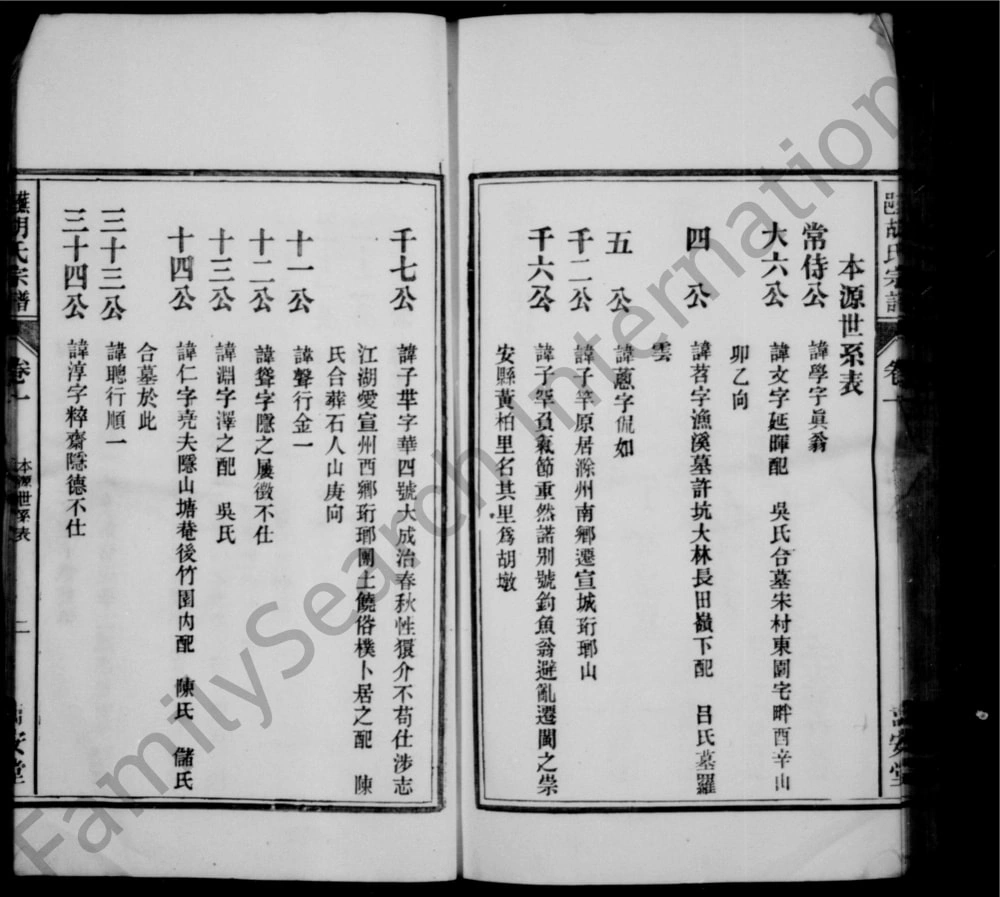 本源世系表
常侍公
諱學字眞翁
大六公
諱文字延暉配 吳氏合墓朱村東園宅畔酉辛山
卯乙向
四 公
諱苕字漁溪墓許坑大林長田嶺下配 呂氏墓羅
雲
五 公
諱蔥字侃如
千二公
諱子竿原居滁州南鄉遷宣城珩瑯山
千六公
諱子䍐負氣節重然諾別號釣魚翁避亂遷閩之崇
安縣黃柏里名其里爲胡墩
胡氏宗譜
卷一
安堂
千七公
諱子華字華四號大成治春秋性獧介不苟仕涉志
江湖愛宣州西鄉珩瑯團土饒俗樸卜居之配 陳
氏合葬石人山庚向
十一公
諱聲行金一
十二公
諱聳字隱之屢徵不仕
十三公
諱淵字澤之配 吳氏
十四公
諱仁字堯夫隱山塘菴後竹園內配 陳氏 儲氏
合墓於此
三十三公
諱聰行順一
三十四公
諱淳字粹齋隱德不仕
胡氏宗譜
卷一
本源世系表
二
安堂
FamilySearch International